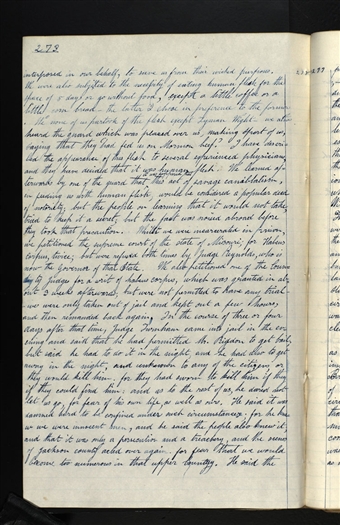 272
interposed in our behalf, to save us from their wicked purpose.
We were also subjected to the necessity of eating human flesh for the
space of 5 days or go without food, except a little coffee or a
little corn bread – the latter I chose in preference to the former.
We none of us partook of the flesh except Lyman Wight. We also
heard the guard which was placed over us, making sport of us,
saying that they had fed us on Mormon beef. I have descri-
bed the appearance of this flesh to several experienced physicians,
and they have decided that it was human flesh. We learned af-
terwards by one of the guard that this act of savage cannibalism,
in feeding us with human flesh, would be considered a popular deed
of notoriety, but the people on learning that it would not take,
tried to keep it a secret; but the fact was noised abroad before
they took that precaution. Whilst we were incarcerated in prison,
we petitioned the supreme court of the state of Missouri for Habeas
corpus, twice; but were refused both times by Judge Reynolds, who is
now the governor of that State. We also petitioned one of the Coun-
ty Judges for a writ of habeas corpus, which was granted in ab-
out 3 weeks afterwards, but were not permitted to have any trial.
we were only taken out of jail and kept out a few hours,
and then remanded back again. In the course of three or four
days after that time, Judge Turnham came into jail in the ev-
ening and said that he had permitted Mr. Rigdon to get bail,
but said he had to do it in the night, and he had also to get
away in the night, and unknown to any of the citizens or
they would kill him, for they had sworn to kill him if they
could find him. and as to the rest of us, he dared not
let us go, for fear of his own life as well as ours. He said it was
damned hard to be confined under such circumstances, for he knew
we were innocent men, and he said the people also knew it;
and that it was only a persecution and treachery, and the scenes
of Jackson county acted over again, for fear that we would
become too numerous in that upper country. He said the